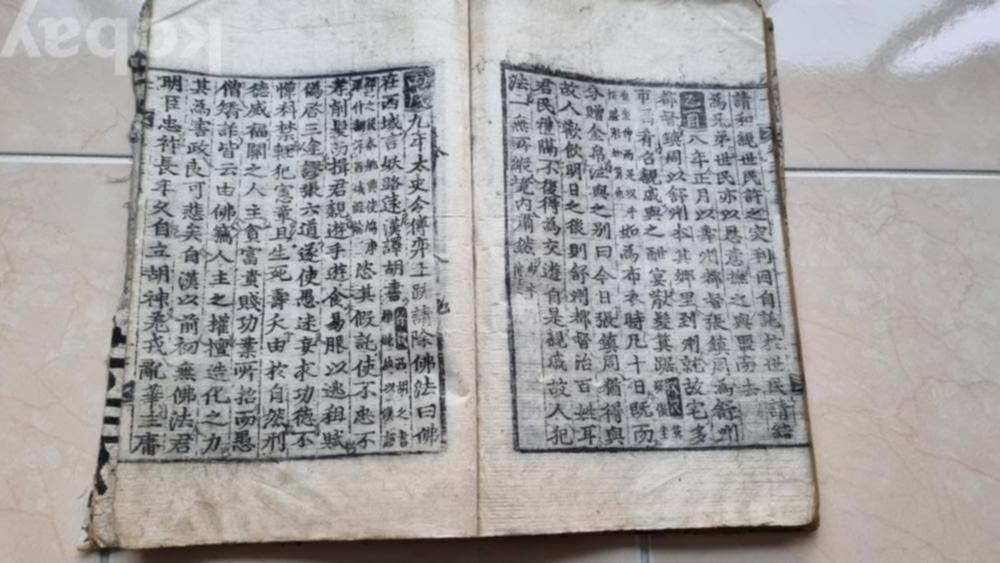 請和親世民許之突利因自託於世民請結
為兄弟世民亦以恩意撫之與盟而去
乙酉八年正月以壽州都督張鎮周為舒州
都督鎮周以舒州本其鄉里到州就故宅多
市酒肴召親戚與之酣宴散髮箕踞
如為布衣時凡十日既而
分贈金帛泣與之別曰今日張鎮周猶得與
故人歡飲明日之後則舒州都督治百姓耳
君民禮隔不復得為交遊自是親戚故人犯
法一無所縱境內肅然
丙戌九年太史令傅奕上疏請除佛法曰佛
在西域言妖路遠漢譯胡書
恣其假託使不忠不
孝削髮而揖君親遊手遊食易服以逃租賦
偽啓三塗謬張六道遂使愚迷妄求功德不
憚科禁輕犯憲章且生死壽夭由於自然刑
德威福關之人主貧富貴賤功業所招而愚
僧矯詐皆云由佛竊人主之權擅造化之力
其為害政良可悲矣自漢以前初無佛法君
明臣忠祚長年久自立胡神羌戎亂華主庸
kobay